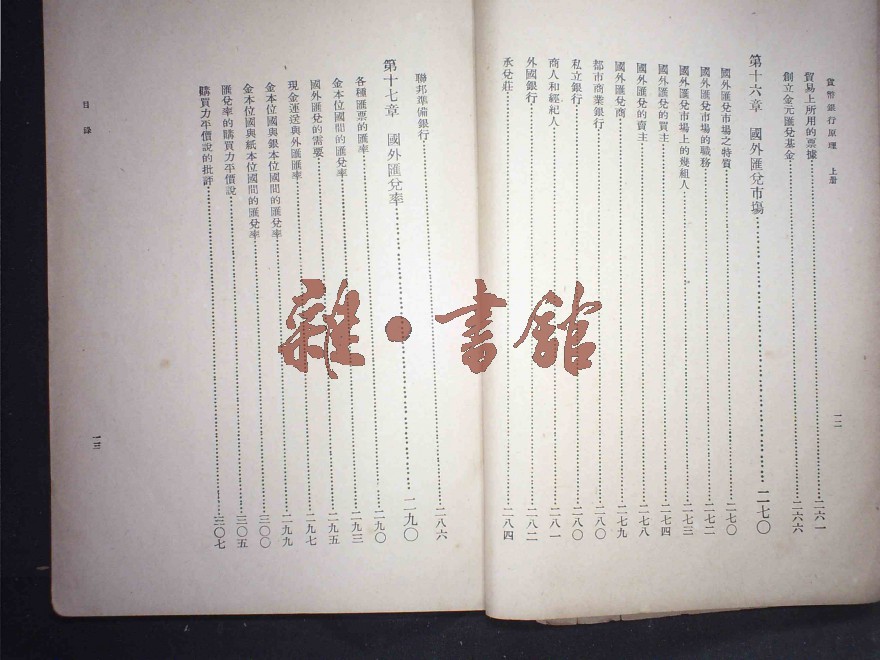 貨幣銀行原理 上册
一二
貿易上所用的票據……二六一
創立金元匯兌基金……二六六
第十六章 國外匯兌市場……二七〇
國外匯兌市場之特質……二七〇
國外匯兌市場的職務……二七二
國外匯兌市場上的幾組人……二七三
國外匯兌的買主……二七四
國外匯兌的賣主……二七八
國外匯兌商……二七九
都市商業銀行……二八〇
私立銀行……二八〇
商人和經紀人……二八一
外國銀行……二八二
承兌莊……二八四
聯邦準備銀行……二八六
第十七章 國外匯兌率……二九〇
各種匯票的匯率……二九〇
金本位國間的匯兌率……二九三
國外匯兌的需要……二九五
現金運送與外匯匯率……二九七
金本位國與銀本位國間的匯兌率……二九九
金本位國與紙本位國間的匯兌率……三〇〇
匯兌率的購買力平價說……三〇五
購買力平價說的批評……三〇七
目錄
一三
雜·書館